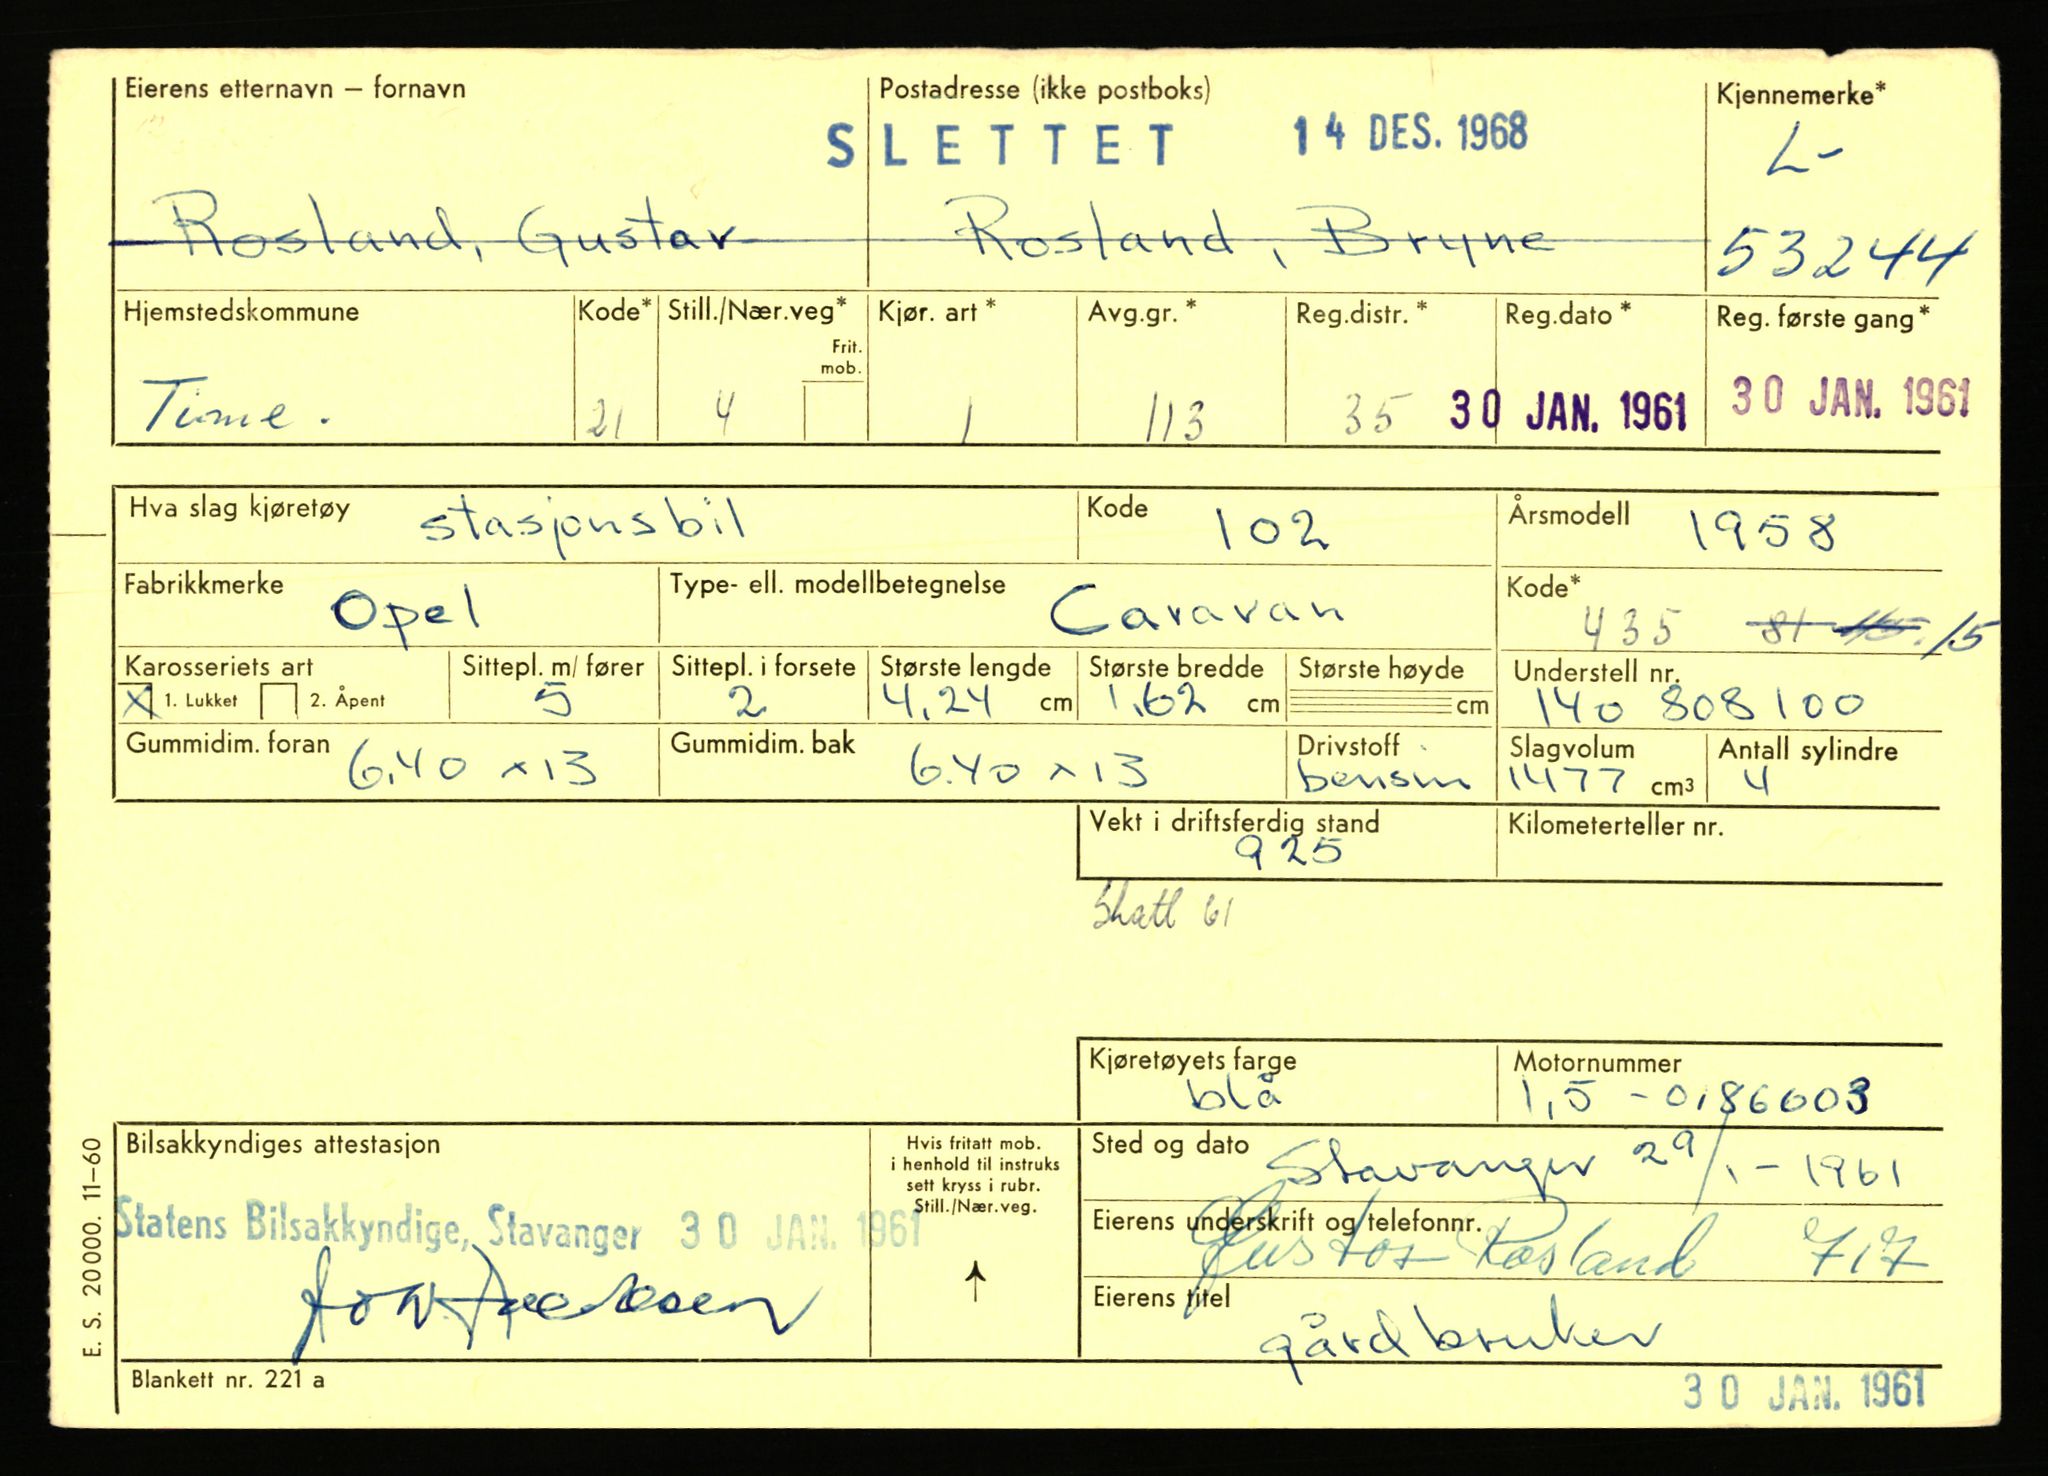 Eierens etternavn – fornavn
Postadresse (ikke postboks)
Kjennemerke*
SLETTET 14 DES. 1968
L-
Rosland, Gustav
Rosland, Bryne
53244
Hjemstedskommune
Kode*
Still./Nær.veg*
Frit. mob.
Kjør. art *
Avg.gr. *
Reg.distr. *
Reg.dato *
Reg. første gang*
Time.
21
4
1
113
35
30 JAN. 1961
30 JAN. 1961
Hva slag kjøretøy stasjonsbil
Kode 102
Årsmodell 1958
Fabrikkmerke Opel
Type- ell. modellbetegnelse Caravan
Kode* 435 81 15
Karosseriets art
X 1. Lukket 2. Åpent
Sittepl. m/ fører 5
Sittepl. i forsete 2
Største lengde 4,24 cm
Største bredde 1,62 cm
Største høyde cm
Understell nr. 140 808100
Gummidim. foran 6.40 x 13
Gummidim. bak 6.40 x 13
Drivstoff bensin
Slagvolum 1477 cm³
Antall sylindre 4
Vekt i driftsferdig stand 925
Kilometerteller nr.
Skatt 61
Kjøretøyets farge blå
Motornummer 1,5 - 0186003
Bilsakkyndiges attestasjon
Statens Bilsakkyndige, Stavanger 30 JAN. 1961
Hvis fritatt mob.
i henhold til instruks
sett kryss i rubr.
Still./Nær.veg.
Sted og dato Stavanger 29/1-1961
Eierens underskrift og telefonnr.
Gustav Rosland 717
Eierens titel
gårdbruker
E. S. 20000. 11–60
Blankett nr. 221 a
30 JAN. 1961